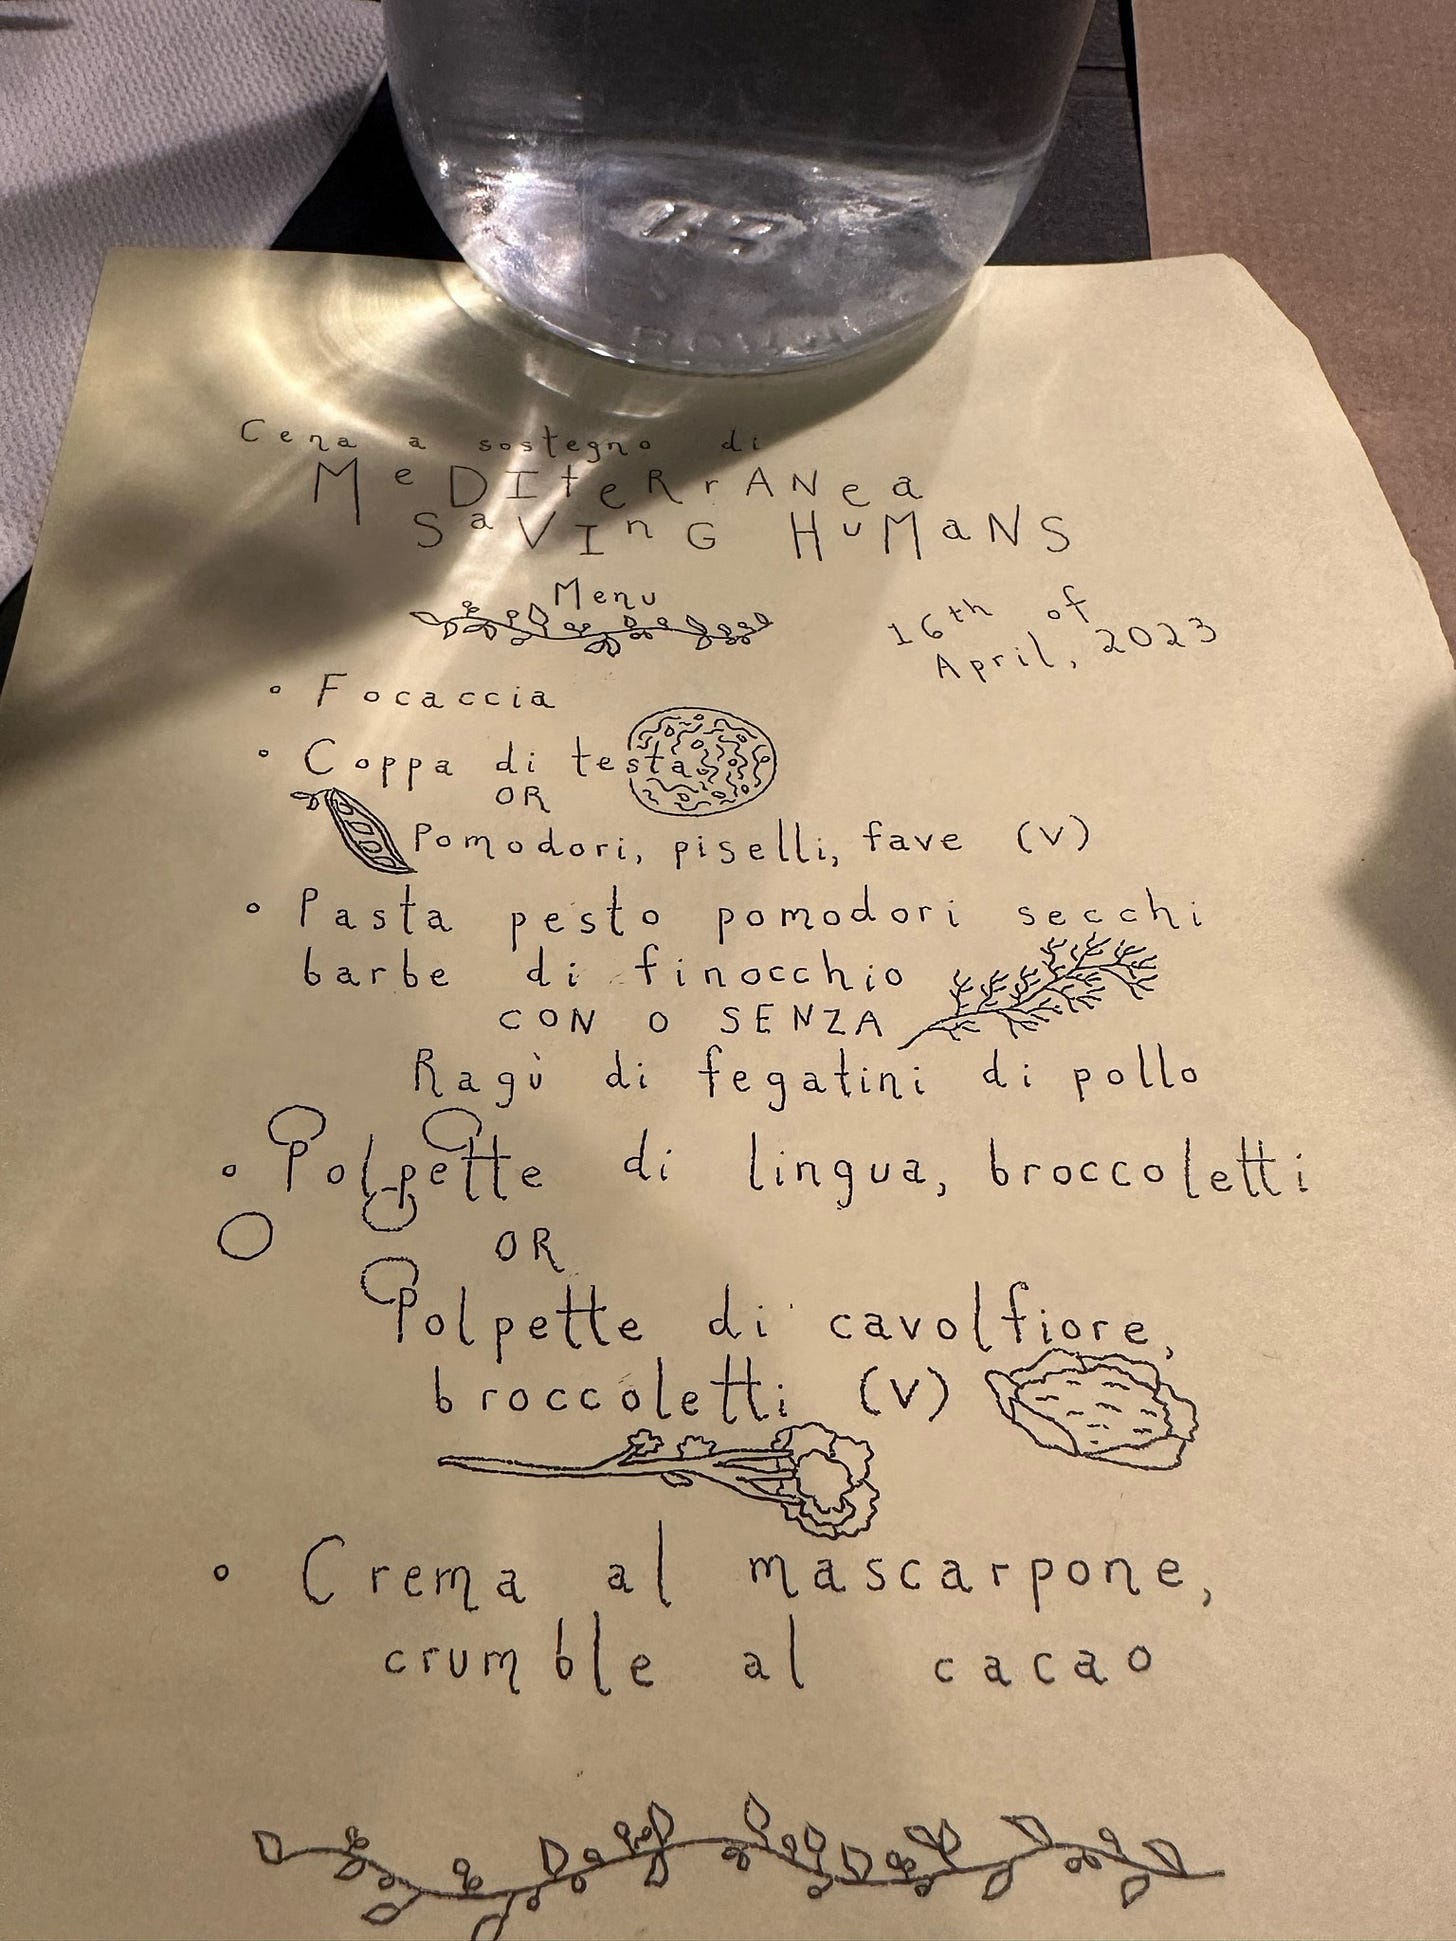 Cena a sostegno di
MeDITeRrANea
SaVInG HuMaNS
Menu
16th of
April, 2023
° Focaccia
° Coppa di testa
OR
Pomodori, piselli, fave (V)
° Pasta pesto pomodori secchi
barbe di finocchio
CON O SENZA
Ragù di fegatini di pollo
° Polpette di lingua, broccoletti
OR
Polpette di cavolfiore,
broccoletti (V)
° Crema al mascarpone,
crumble al cacao